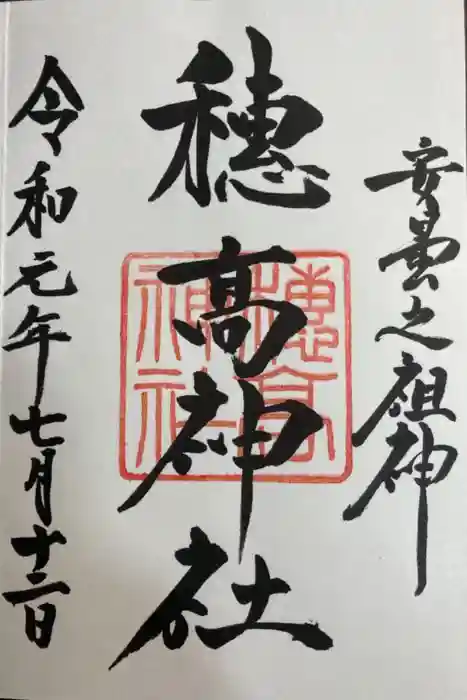 安曇之祖神
穂高神社
穂高神社
令和元年七月十二日